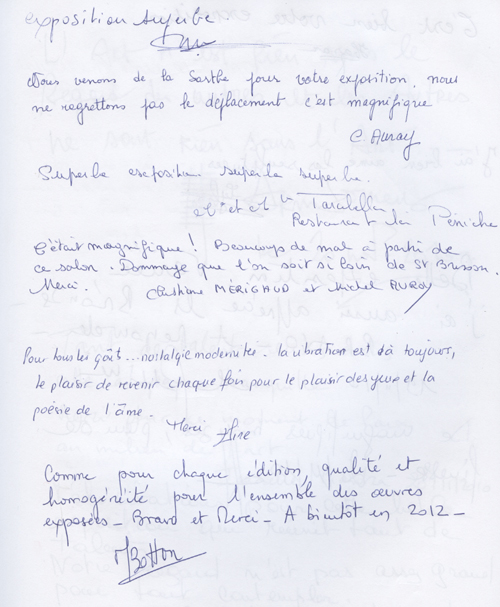 exposition superbe
Nous venons de la Sarthe pour votre exposition. nous
ne regrettons pas le déplacement c'est magnifique
C. Auray
Superbe exposition superbe superbe.
et Tarabella
Restaurant la Péniche
C'était magnifique ! Beaucoup de mal à partir de
ce salon. Dommage que l'on soit si loin de St Brisson.
Merci. Christine MÉRIGAUD et Michel AURAY
Pour tous les goûts... nostalgie modernité. la vibration est là toujours,
le plaisir de revenir chaque fois pour le plaisir des yeux et la
poésie de l'âme.
Merci
Comme pour chaque édition, qualité et
homogénéité pour l'ensemble des œuvres
exposées - Bravo et Merci - A bientôt en 2012 -